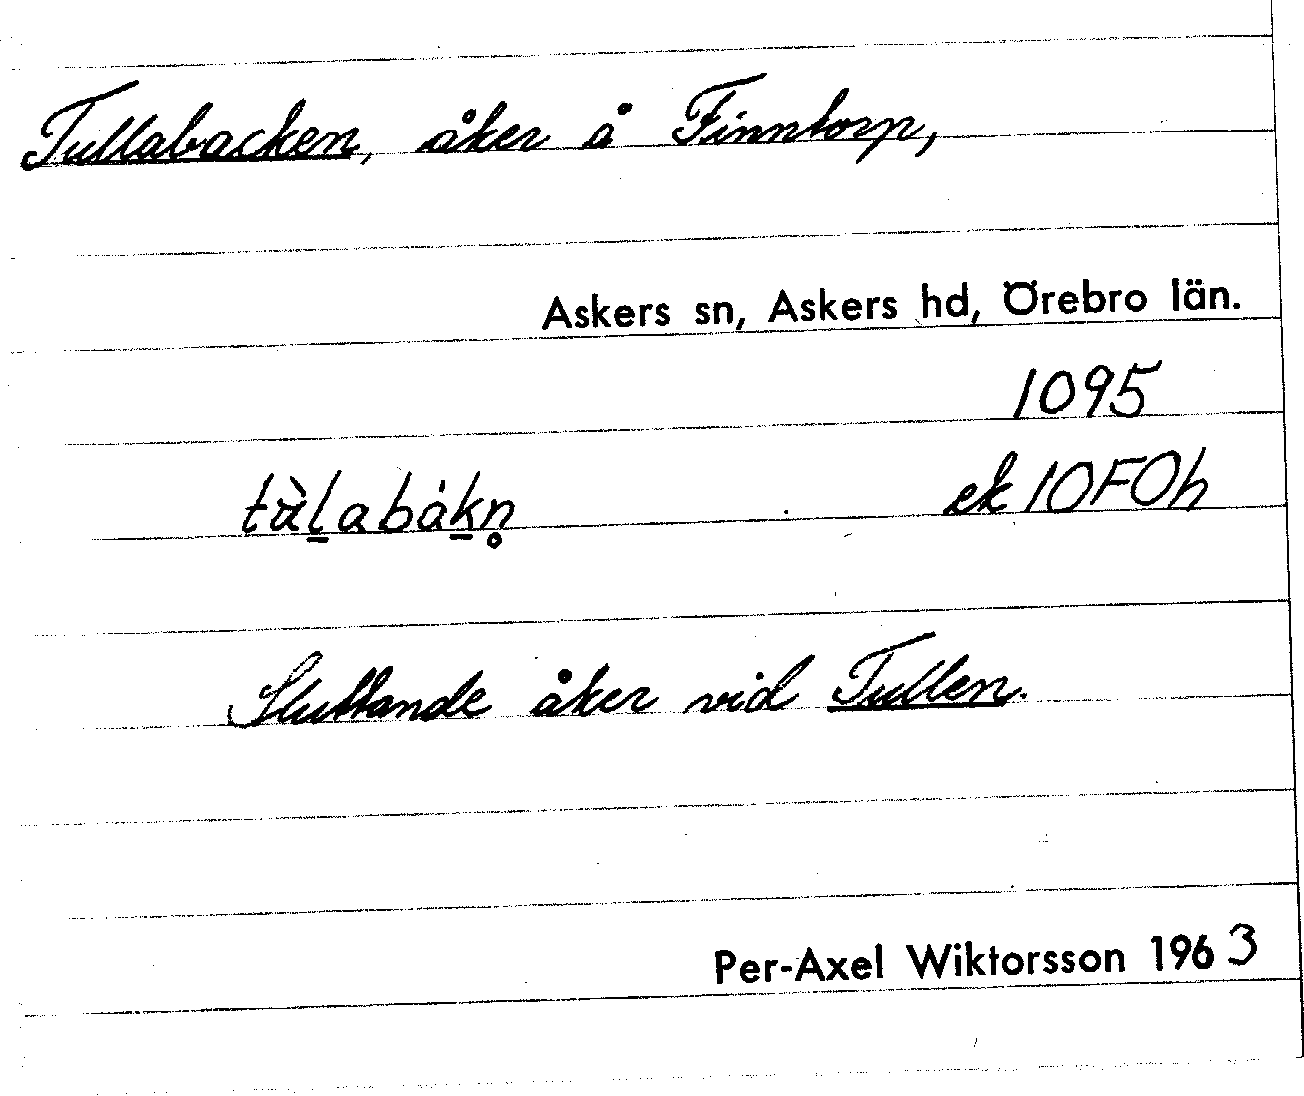 Tullabacken, åker å Finntorp,
Askers sn, Askers hd, Örebro län.
1095
tùl̠abák̠n̥ ek 10F0h
Sluttande åker vid Tullen.
Per-Axel Wiktorsson 1963